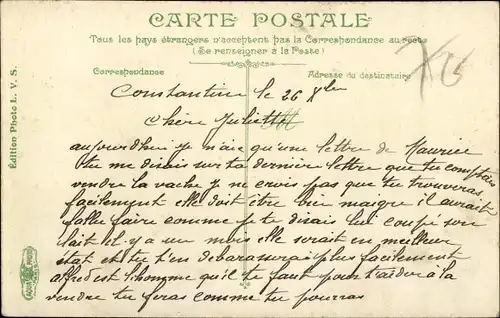 CARTE POSTALE
Tous les pays étrangers n'acceptent pas la Correspondance au recto
(Se renseigner à la Poste)
Correspondance
Adresse du destinataire
Édition Photo L. V. S.
Constantine le 26 Xbre
Chère Juliette
aujourdhui je n'aie qu'une lettre de Maurice
tu me dirais sur ta dernière lettre que tu comptais
vendre la vache je ne crois pas que tu trouveras
facilement elle doit être bien maigre il aurait
fallu faire comme je te dirais lui coupé son
lait il y a un mois elle serait en meilleur
état et tu t'en debarasserai plus facilement
alfred est l'homme qu'il te faut pour t'aider à la
vendre tu feras comme tu pourras